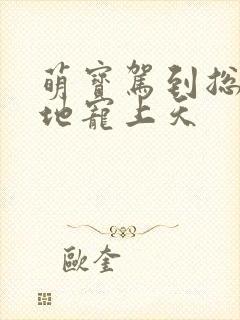 萌寶駕到總
地寵上天
歐奎